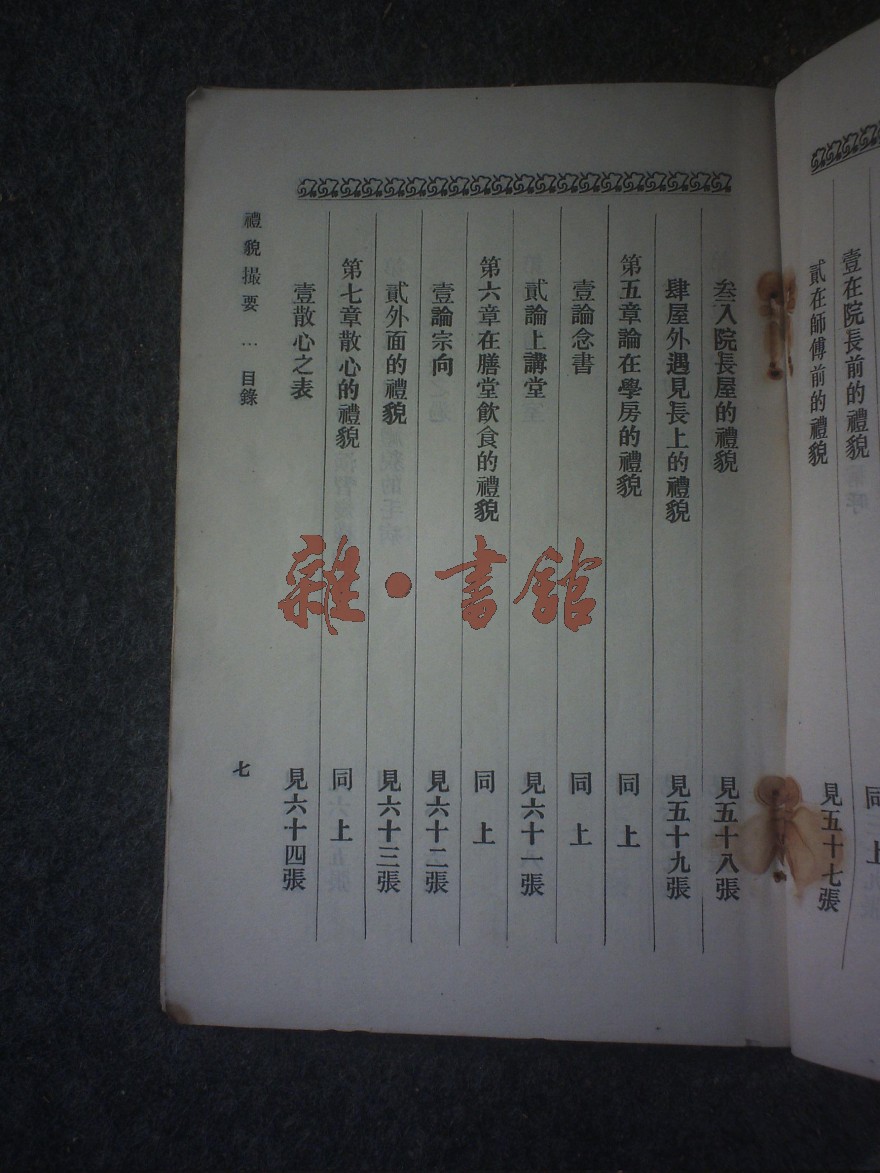 壹在院長前的禮貌 同上
貳在師傅前的禮貌 見五十七張
叁入院長屋的禮貌 見五十八張
肆屋外遇見長上的禮貌 見五十九張
第五章論在學房的禮貌 同上
壹論念書 同上
貳論上講堂 見六十一張
第六章在膳堂飲食的禮貌 同上
壹論宗向 見六十二張
貳外面的禮貌 見六十三張
第七章散心的禮貌 同上
壹散心之表 見六十四張
禮貌撮要 … 目錄 七
雜·書館